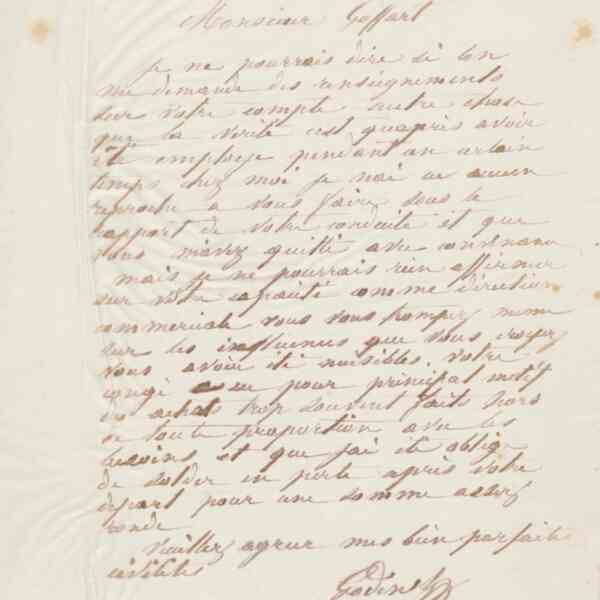 Monsieur Goffart
je ne pourrais dire si l'on
me demande des renseignements
sur votre compte autre chose
que la verité c'est qu'après avoir
été employé pendant un certain
temps chez moi je n'ai eu aucun
reproche a vous faire sous le
rapport de votre conduite et que
vous m'avez quitté avec convenance
mais je ne pourrais rien affirmer
sur votre capacité comme direction
commerciale vous vous trompez meme
sur les influences que vous croyez
vous avoir été nuisibles. votre
congé a eu pour principal motif
des achats trop souvent faits hors
de toute proportion avec les
besoins et que j'ai été obligé
de solder en perte après votre
départ pour une somme assez
ronde
Veuillez agréer mes bien parfaites
civilités
Godin